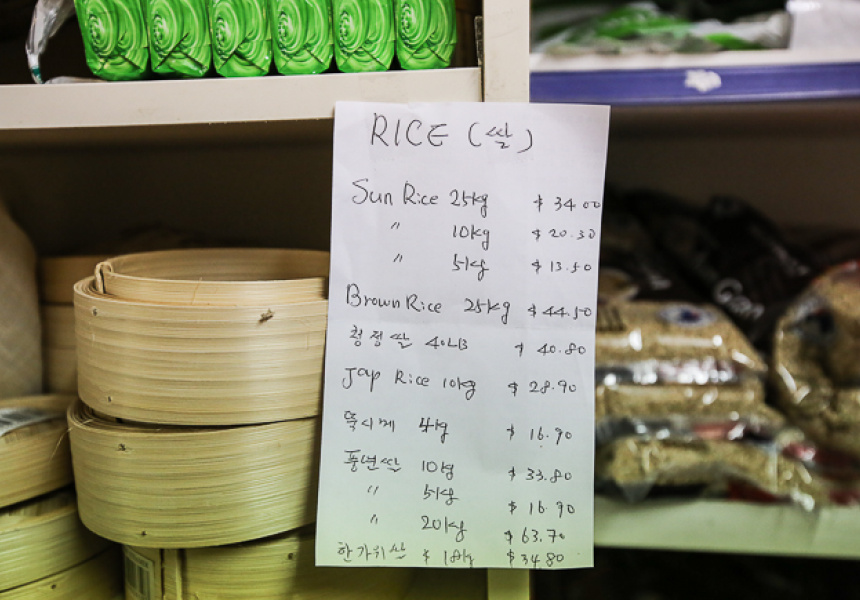 RICE (쌀)
Sun Rice 25kg $ 34.00
〃 10kg $ 20.30
〃 5kg $ 13.50
Brown Rice 25kg $ 44.50
청정쌀 40LB $ 40.80
Jap Rice 10kg $ 28.90
뚝시메 4kg $ 16.90
풍년쌀 10kg $ 33.80
〃 5kg $ 16.90
〃 20kg $ 63.70
한가위쌀 18kg $ 34.80